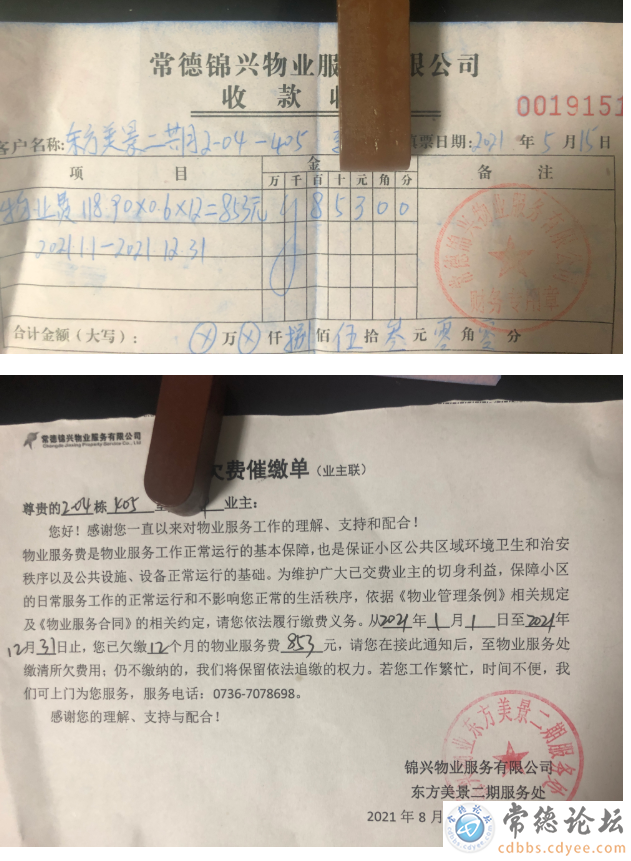 常德锦兴物业服 限公司
收 款 收
0019151
客户名称:东方美景二期2-04-405 填票日期:2021年5月15日
项 目 金 备 注
万 千 百 十 元 角 分
物业费 118.90×0.6×12=853元 8 5 3 0 0
2021.1.1-2021.12.31
常德锦兴物业服务有限公司
服务专用章
合计金额(大写): ⊗万⊗仟捌佰伍拾叁元零角零分
常德锦兴物业服务有限公司
Changde Jinxing Property Service Co., Ltd
欠费催缴单(业主联)
尊贵的2-04栋405室 业主:
您好!感谢您一直以来对物业服务工作的理解、支持和配合!
物业服务费是物业服务工作正常运行的基本保障,也是保证小区公共区域环境卫生和治安
秩序以及公共设施、设备正常运行的基础。为维护广大已交费业主的切身利益,保障小区
的日常服务工作的正常运行和不影响您正常的生活秩序,依据《物业管理条例》相关规定
及《物业服务合同》的相关约定,请您依法履行缴费义务。从2021年1月1日至2021年
12月31日止,您已欠缴12个月的物业服务费853元,请您在接此通知后,至物业服务处
缴清所欠费用;仍不缴纳的,我们将保留依法追缴的权力。若您工作繁忙,时间不便,我
们可上门为您服务,服务电话:0736-7078698。
感谢您的理解、支持与配合!
物业东方美景二期服务处
锦兴物业服务有限公司
东方美景二期服务处
2021 年 8 月
常德论坛
cdbbs.cdyee.com